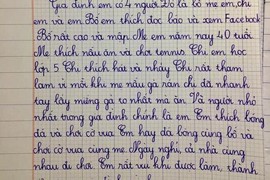 Gia đình em có 4 người Đó là bố mẹ em, chị
em và em Bố em thích đọc báo và xem Facebook
Bố rất cao và mập Mẹ em năm nay 40 tuổi
Mẹ thích nấu ăn và chơi tennis Chị em học
lớp 5 Chị thích hát và nhảy Chị rất tham
lam vì mỗi khi mẹ nấu gà rán chị đã nhanh
tay lấy miếng gà to nhất mà ăn Và người nhỏ
nhất trong gia đình chính là em Em thích bóng
đá và chơi cờ vua Em hay đá bóng cùng bố và
chơi cờ vua cùng mẹ. Ngày nghỉ, cả nhà cùng
nhau đi chơi. Em rất vui khi được làm, thành